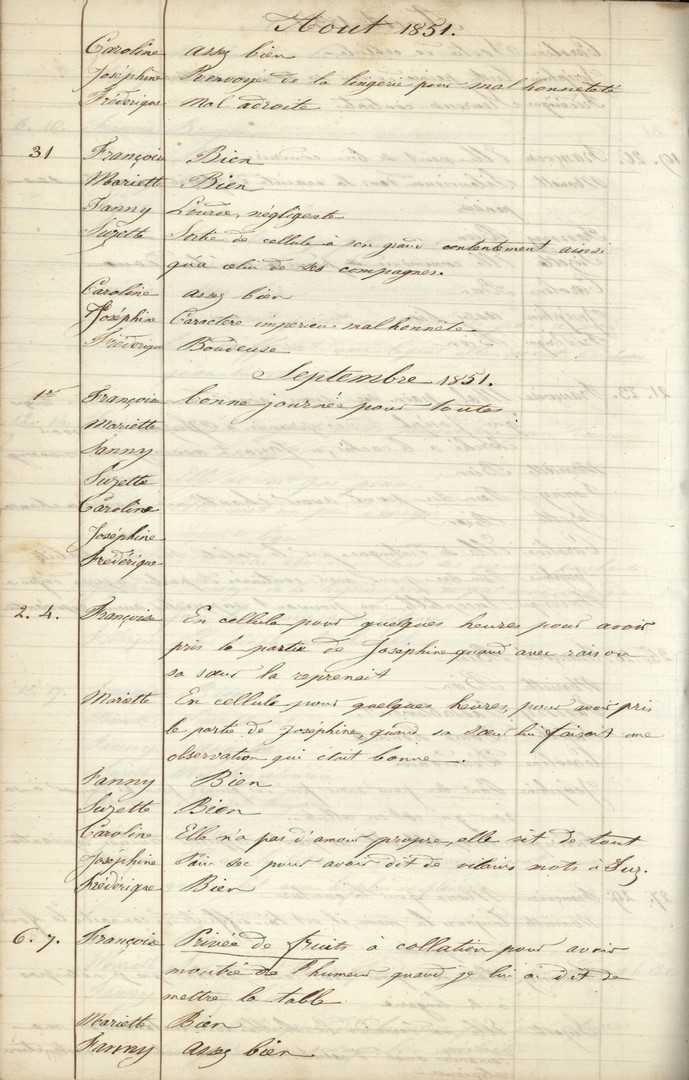 Aout 1851.
Caroline assez bien
Joséphine Renvoyé de la lingerie pour mal honnêteté
Frédérique Mal adroite
31 Françoise Bien
Mariette Bien
Fanny Lourde, négligente
Suzette Sortie de cellule à son grand contentement ainsi
qu'a celui de ses compagnes.
Caroline assez bien
Joséphine Caractère imperieu malhonnête
Fréderique Boudeuse
Septembre 1851.
1er Françoise bonne journée pour toutes
Mariette
Fanny
Suzette
Caroline
Joséphine
Frédérique
2. 4. Françoise En cellule pour quelques heures pour avoir
pris le partie de Joséphine quand avec raison
sa sœur la reprenait
Mariette En cellule pour quelques heures, pour avoir pris
le partie de Joséphine, quand sa sœur lui faisait une
observation qui était bonne.
Fanny Bien
Suzette Bien
Caroline Elle n'a pas d'amour propre, elle rit de tout
Joséphine Pain sec pour avoir dit de vilains mots à Suz.
Frédérique Bien
6. 7. Françoise Privée de fruits à collation pour avoir
montré de l'humeur quand je lui ai dit de
mettre la table.
Mariette Bien
Fanny assez bien